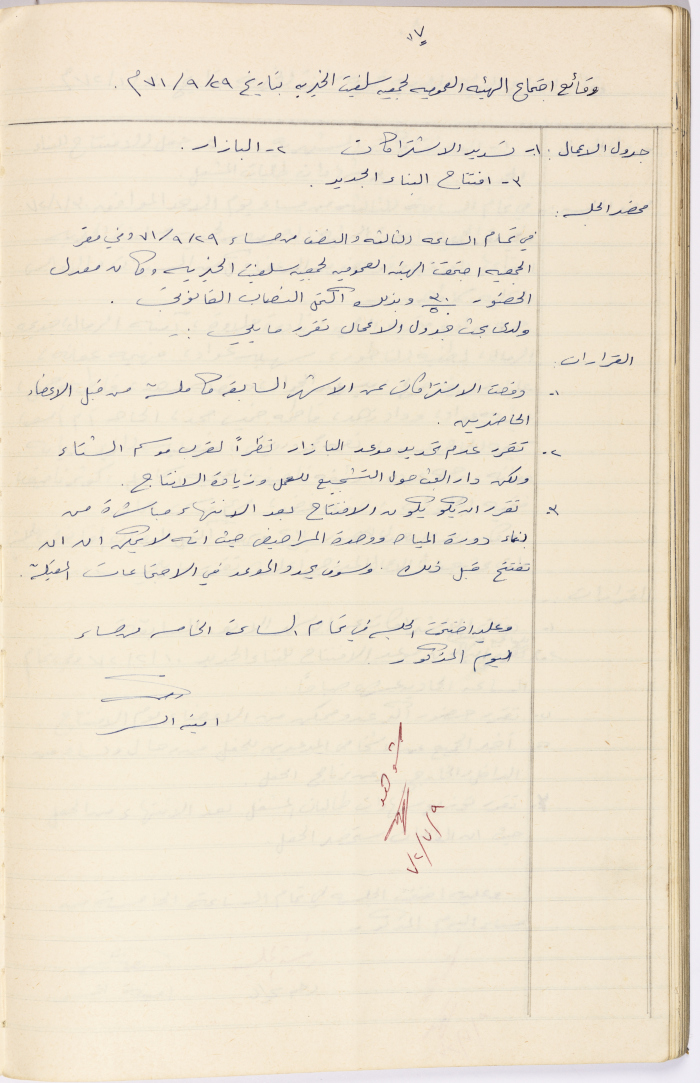 ٧
وقائع اجتماع الهيئه العموميه لجمعيه سلفيت الخيريه بتاريخ ٢٩/٩/٧١م.
جدول الاعمال: ١- تسديد الاشتراكات ٢- البازار.
٣- افتتاح البناء الجديد.
محضر الجلسه:
في تمام الساعه الثالثه والنصف من مساء ٢٩/٩/٧١ وفي مقر
الجمعيه اجتمعت الهيئه العموميه لجمعيه سلفيت الخيريه وكان معدل
الحضور ٣٠/٥٠ وبذلك اكتمل النصاب القانوني.
ولدى بحث جدول الاعمال تقرر ما يلي :-
القرارات:
١- دفعت الاشتراكات عن الاشهر السابقه كاملة من قبل الاعضاء
الحاضرين.
٢- تقرر عدم تحديد موعد البازار نظراً لقرب موسم الشتاء
ولكن دار البحث حول التشجيع للعمل وزيادة الانتاج.
٣- تقرر ان يكو يكون الافتتاح بعد الانتهاء مباشرة من
بناء دورة المياه ووحدة المراحيض حيث انه لا يمكن ان ان
تفتتح قبل ذلك. وسوف يحدد الموعد في الاجتماعات المقبلة.
وعليه اختتمت الجلسه في تمام الساعة الخامسه من مساء
اليوم المذكور.
امينه السر
شوهد
٩/٧/٧٢